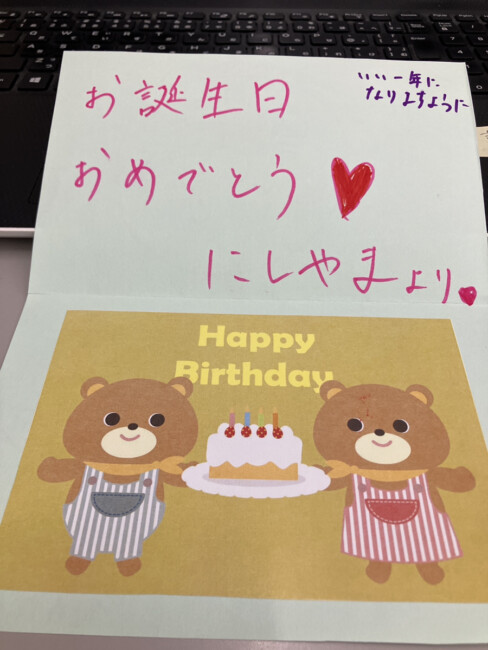 お誕生日
いい一年に
なりますように
おめでとう
にしやまより
Happy
Birthday